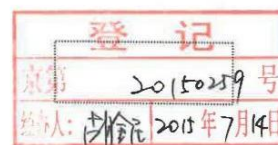 登 记
第 20150259 号
经办人: 2015年7月14日